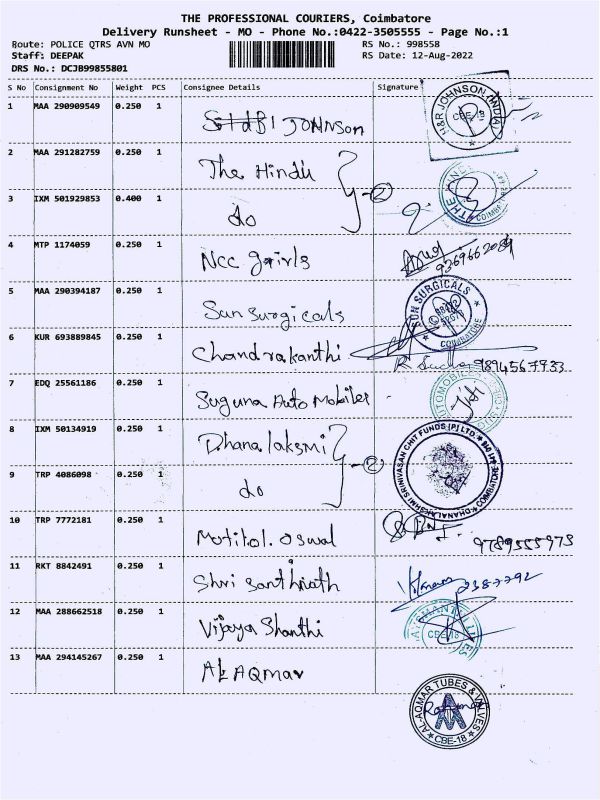 THE PROFESSIONAL COURIERS, Coimbatore
Delivery Runsheet - MO - Phone No.:0422-3505555 - Page No.:1
Route: POLICE QTRS AVN MO RS No.: 998558
Staff: DEEPAK RS Date: 12-Aug-2022
DRS No.: DCJB99855801
S No Consignment No Weight PCS Consignee Details Signature
1 MAA 290909549 0.250 1 JOHNSON
H&R JOHNSON (INDIA) CBE-18
2 MAA 291282759 0.250 1 The Hindu
2
THE HINDU COIMBATORE
3 IXM 501929853 0.400 1 do
4 MTP 1174059 0.250 1 Ncc girls
5 MAA 290394187 0.250 1 Sun Surgicals
SUN SURGICALS COIMBATORE
6 KUR 693889845 0.250 1 Chandrakanthi
9894567933
7 EDQ 25561186 0.250 1 Suguna Auto Mobiles
8 IXM 50134919 0.250 1 Dhanalaksmi
2
DHANALAKSHMI SRINIVASAN CHIT FUNDS (P) LTD COIMBATORE
9 TRP 4086098 0.250 1 do
10 TRP 7772181 0.250 1 Motilal. Oswal
9789555973
11 RKT 8842491 0.250 1 Shri Santhinath
2387792
12 MAA 288662518 0.250 1 Vijaya Shanthi
CBE-18
13 MAA 294145267 0.250 1 AL AQMAR
AL-AQMAR TUBES & VALVES CBE-18